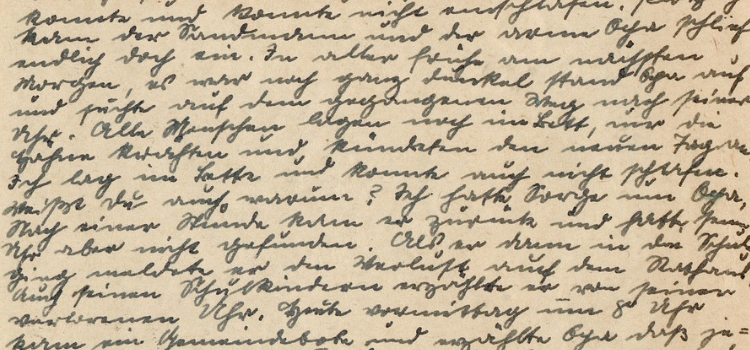 konnte und konnte nicht einschlafen.
kam der Sandmann und der arme Opa schlief
endlich doch ein. In aller frühe am nächsten
Morgen, es war noch ganz dunkel stand Opa auf
und suchte auf dem gegangenen Weg nach seiner
Uhr. Alle Menschen lagen noch im Bett, nur die
Hähne krähten und kündeten den neuen Tag an
Ich lag im Bette und konnte auch nicht schlafen.
Weißt Du auch warum? Ich hatte Sorge um Opa,
Nach einer Stunde kam er zurück und hatte seine
Uhr aber nicht gefunden. Als er dann in die Schule
ging meldete er den Verlust auch dem Rathaus
Auch seinen Schulkindern erzählte er von seiner
verlorenen Uhr. Heute vormittag um 8 Uhr
kam ein Gemeindebote und erzählte Opa daß je=